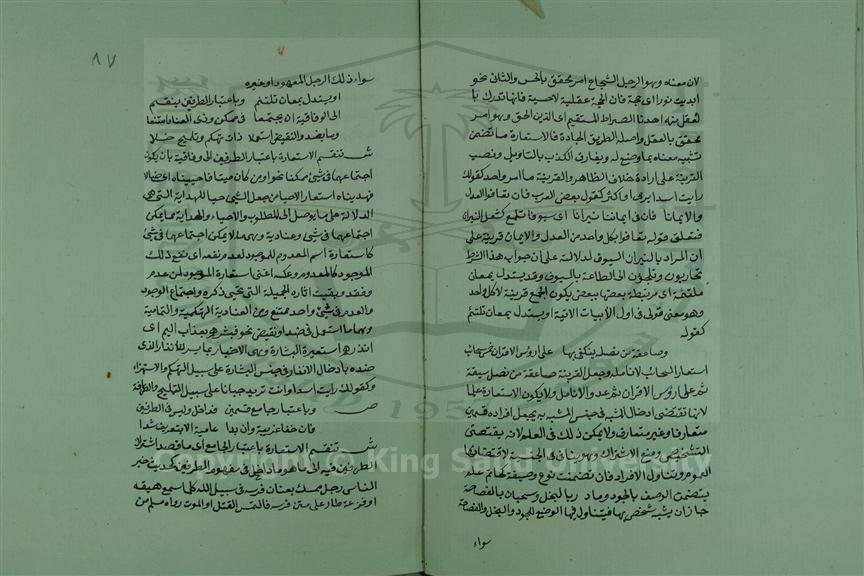 لان معناه وهو الرجل الشجاع امر محقق بالحس والثاني نحو
ابديت نورا اي حجة فان الحجة عقلية لا حسية فانها تدرك با
لعقل ومنه اهدنا الصراط المستقيم اي الدين الحق وهو امر
محقق بالعقل واصله الطريق الجادة فالاستعارة ما تضمن
تشبيه معناه بما وضع له ويفارق الكذب بالتاويل ونصب
القرينة على ارادة خلاف الظاهر والقرينة ما امر واحد كقولك
رايت اسدا يرمي او اكثر كقول بعض العرب فان تعافوا العدل
والايمانا فان في ايماننا نيرانا اي سيوفا تلمع كشعل النيران
فتعلق قوله تعافوا بكل واحد من العدل والايمان قرينة على
ان المراد بالنيران السيوف لدلالته على ان جواب هذا الشرط
تحاربون وتلجؤن الى الطاعة بالسيوف وقد يستدل بمعان
ملتئمة اي مرتبطة بعضها ببعض يكون الجميع قرينة لا كل واحد
وهو معنى قولي في اول الابيات الاتية او يستدل بمعان تلتئم
كقوله
وصاعقة من نصله ينكفي بها على ارؤس الاقران خمس سحائب
استعار السحائب لانامله وجعل القرينة صاعقة من نصل سيفه
ثم على ارؤس الاقران ثم عدد الانامل ولا يكون الاستعارة علما
لانها تقتضي ادخال المشبه في جنس المشبه به بجعل افراده قسمين
متعارفا وغير متعارف ولا يمكن ذلك في العلم لانه يقتضي
التشخص ومنع الاشتراك وهو ينافي الجنسية لاقتضائها
العموم وتناول الافراد فان تضمنت نوع وصفية كحاتم علم
يتضمن الوصف بالجود ومادر بالبخل وسحبان بالفصاحة
جاز ان يشبه شخص بها فيتناول فيها الوضع للجود والبخل والفصاحة
سواء
٨٧
سواء ذلك الرجل المعهود او غيره
او يستدل بمعان تلتئم وباعتبار الطرفين ينقسم
الى الوفاقية ان يجتمعا في ممكن وذي العناد امتنعا
وما بضد والنقيض استعملا ذات تهكم وتلميح خلا
ش تنقسم الاستعارة باعتبار الطرفين الى وفاقية بان يكون
اجتماعهما في شئ ممكنا نحو او من كان ميتا فاحييناه اي ضالا
فهديناه استعار الاحيا من جعل الشئ حيا للهداية التي هي
الدلالة على ما يوصل الى المطلوب والاحياء والهداية مما يمكن
اجتماعهما في شئ وعنادية وهي ما لا يمكن اجتماعهما في شئ
كاستعارة اسم المعدوم للموجود لعدم نفعه اي نفع ذلك
الموجود كالمعدوم وعكسه اعني استعارة الموجود لمن عدم
وفقد وبقيت اثاره الجميلة التي تحيي ذكره واجتماع الوجود
والعدم في شئ واحد ممتنع ومن العنادية التهكمية والتمليحية
وهما ما استعمل في ضد او نقيض نحو فبشرهم بعذاب اليم اي
انذرهم استعيرت البشارة وهي الاخبار بما يسر للانذار الذي
ضده بادخال الانذار في جنس البشارة على سبيل التهكم والاستهزاء
وكقولك رايت اسدا وانت تريد جبانا على سبيل التمليح والظرافة
ص وباعتبار جامع قسمين فداخل وليس في الطرفين
فان خفا غريبة وان بدا عامية الا بتعريف شدا
ش تنقسم الاستعارة باعتبار الجامع اي ما قصد اشتراك
الطرفين فيه الى ما هو داخل في مفهوم الطرفين كحديث خير
الناس رجل ممسك بعنان فرسه في سبيل الله كلما سمع هيعة
او فزعة طار على متن فرسه فالتمس القتل او الموت رواه مسلم من
Copyright © King Saud University
1957